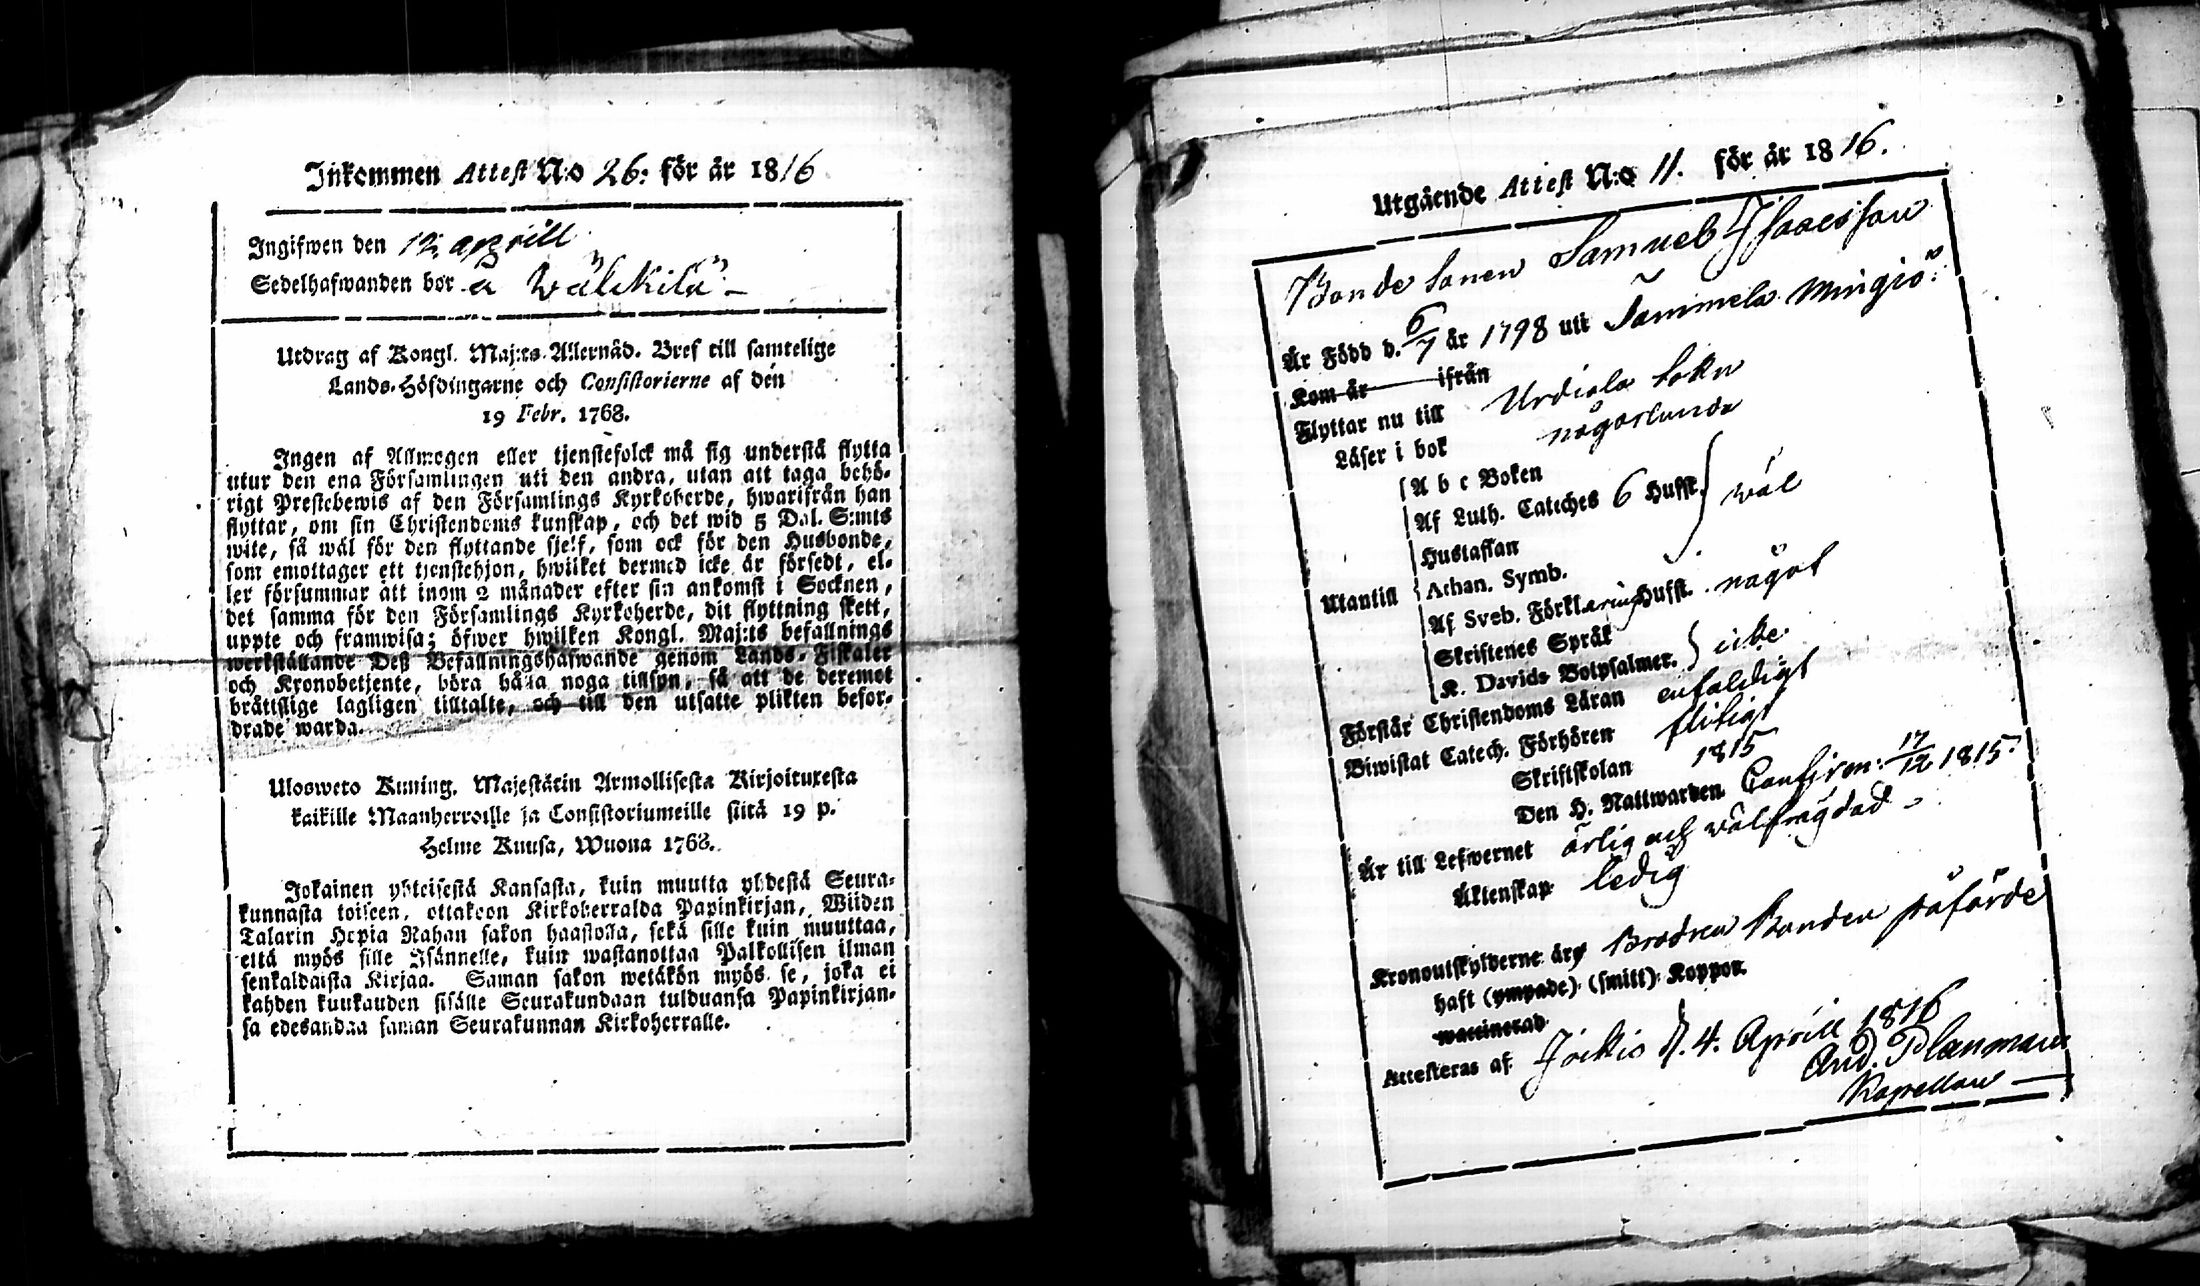 Inkommen Attest N:o 26: för år 1816
Ingifwen den 12 aprill
Sedelhafwanden bor å Wälkilä
Utdrag af Kongl. Maj:ts Allernåd. Bref till samtelige
Lands-Höfdingarne och Consistorierne af den
19 Febr. 1768.
Ingen af Allmogen eller tjenstefolck må sig understå flytta
utur den ena Församlingen uti den andra, utan att taga behö-
rigt Prestebewis af den Församlings Kyrkoherde, hwarifrån han
flyttar, om sin Christendoms kunskap, och det wid 5 Dal. S:mts
wite, så wäl för den flyttande sjelf, som ock för den Husbonde,
som emottager ett tjenstehjon, hwilket dermed icke är försedt, el-
ler försummar att inom 2 månader efter sin ankomst i Socknen,
det samma för den Församlings Kyrkoherde, dit flyttning skett,
uppte och framwisa; öfwer hwilken Kongl. Maj:ts befallnings
werkställande Deß Befallningshafwande genom Lands-Fiskaler
och Kronobetjente, böra hålla noga tillsyn, så att de deremot
bråttslige lagligen tilltalte, och till den utsatte plikten befor-
drade warda.
Ulosweto Kuning. Majestätin Armollisesta Kirjoituxesta
kaikille Maanherroille ja Consistoriumeille siitä 19 p.
Helme Kuusa, Wuona 1768.
Jokainen yhteisestä Kansasta, kuin muutta yhdestä Seura-
kunnasta toiseen, ottakoon Kirkoherralda Papinkirjan, Wiiden
Talarin Hopia Rahan sakon haastolla, sekä sille kuin muuttaa,
että myös sille Isännelle, kuin wastanottaa Palkollisen ilman
senkaldaista Kirjaa. Saman sakon wetäkön myös se, joka ei
kahden kuukauden sisälle Seurakundaan tulduansa Papinkirjan-
sa edesandaa saman Seurakunnan Kirkoherralle.
Utgående Attest N:o 11. för år 1816.
Bonde sonen Samuel Isaacsson
Är Född d. 6/7 år 1798 uti Tammela Mingiö
Kom år ifrån
Flyttar nu till Urdiala Sokn
Läser i bok någorlunda
Utantill
A b c Boken
Af Luth. Cateches 6 Hufst. wäl
Hustaflan
Athan. Symb.
Af Sveb. Förklaring Hufst. något
Skriftenes Språk
K. Davids Botpsalmer. icke
Förstår Christendoms Läran enfaldigt
Biwistat Catech. Förhören flitigt
Skriftskolan 1815
Den H. Nattwarden Confirm: 17/12 1815.
Är till Lefwernet ärlig och wälfrägdad
Äktenskap ledig
Kronoutskylderne äro Brodren Bonden påförde
haft (ympade) (smitt) Koppor
waccinerad
Attesteras af Jockis d. 4. Aprill 1816
And. Planman
Kapellan